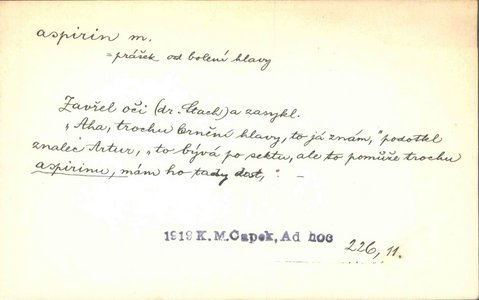 aspirin m.
= prášek od bolení hlavy
Zavřel oči (dr. Stach) a zasykl.
„Aha, trochu brnění hlavy, to já znám," podotkl
znalec Artur, „to bývá po sektu, ale to pomůže trochu
aspirinu, mám ho tady dost," –
1919 K. M. Capek, Ad hoc
226, 11.